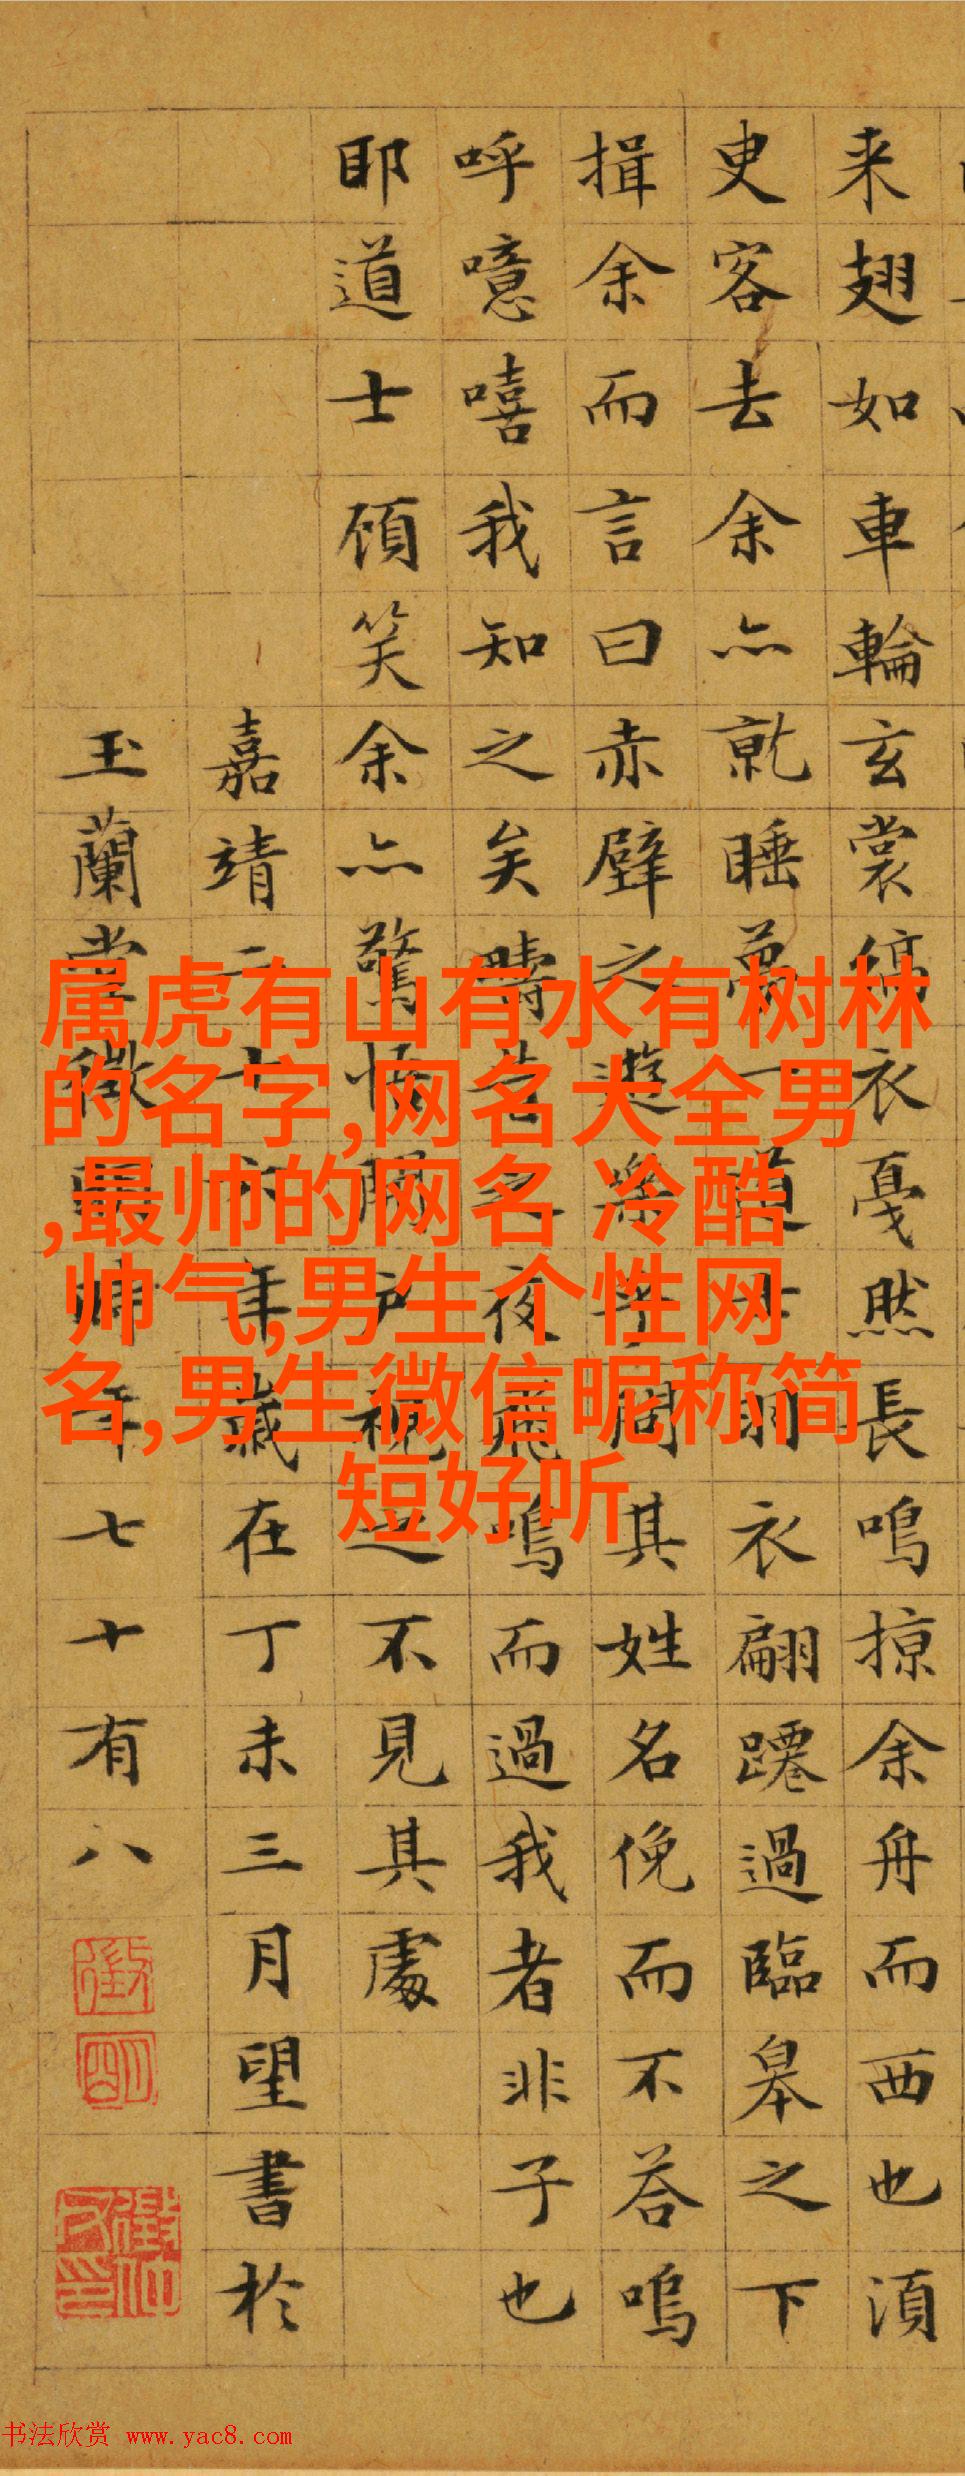 来翅如車輪玄裳縞衣戛然長鳴掠余舟而西也湏
叓客去余亦就睡夢一道士羽衣翩躚過臨皋之下
揖余而言曰赤壁之遊樂乎問其姓名俛而不荅嗚
呼噫嘻我知之矣疇昔之夜飛鳴而過我者非子也
耶道士顧笑余亦驚悟開戶視之不見其處
嘉靖二十六年歲在丁未三月望書於
玉蘭堂徵明時年七十有八
属虎有山有水有树林
的名字,网名大全男
,最帅的网名 冷酷
帅气,男生个性网
名,男生微信昵称简
短好听
书法欣赏 www.yac8.com